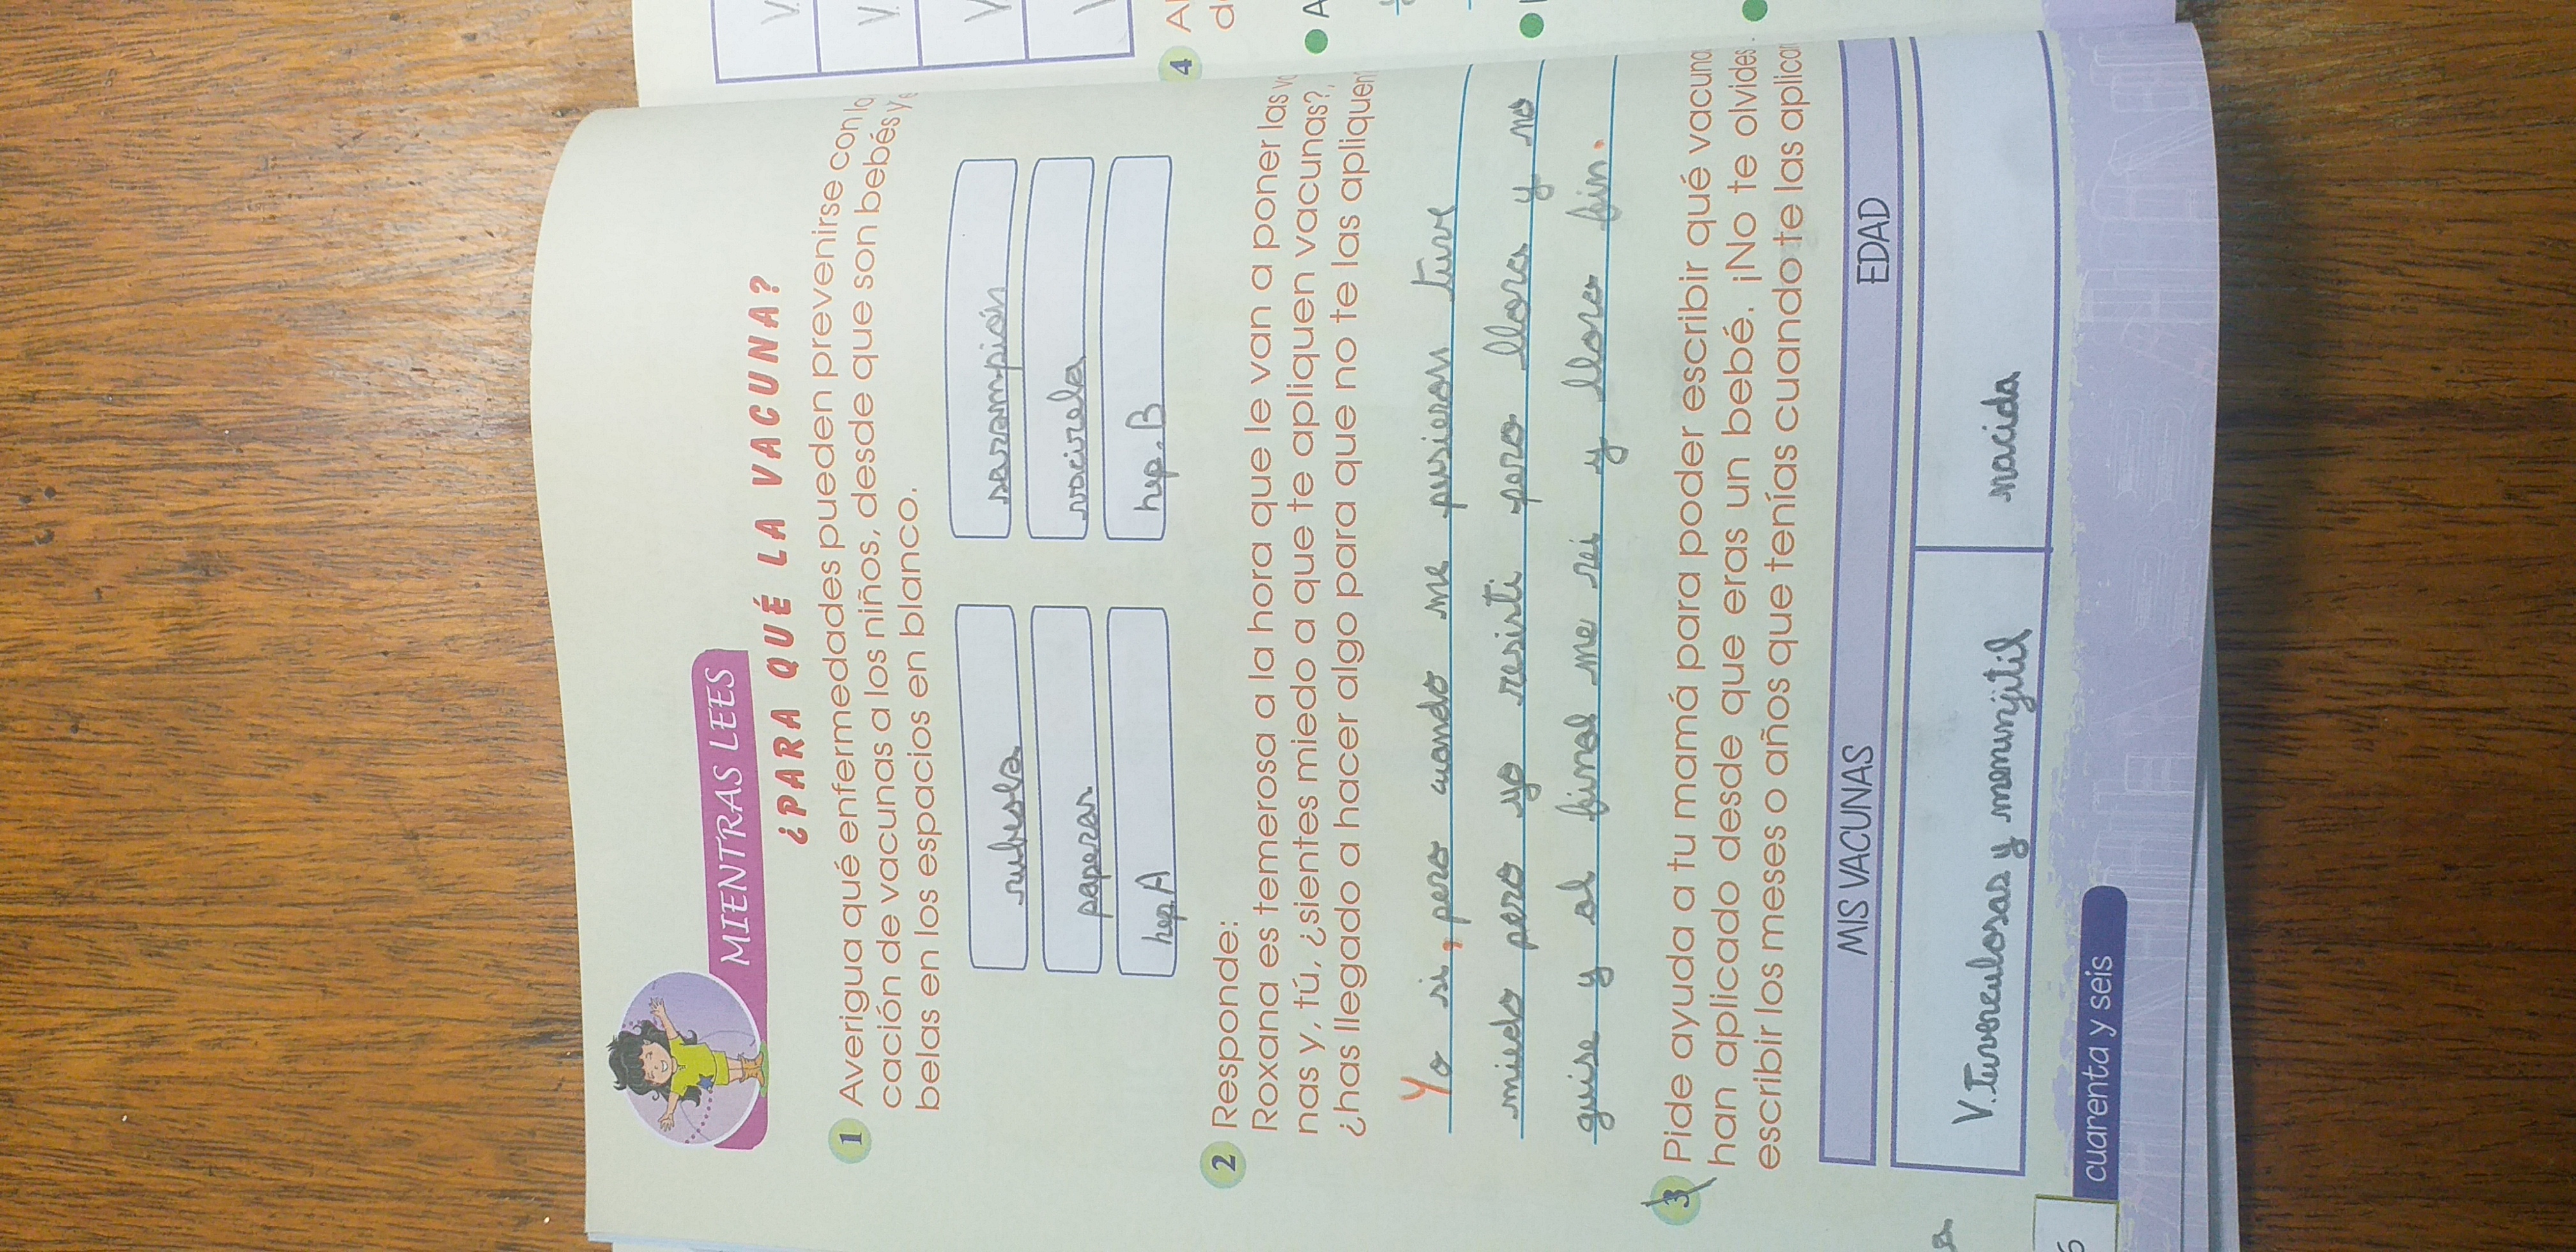 MIENTRAS LEES
¿PARA QUÉ LA VACUNA?
1 Averigua qué enfermedades pueden prevenirse con la
cación de vacunas a los niños, desde que son bebés y e
belas en los espacios en blanco.
rubeola sarampión
paperas vacirela
hep. A hep. B
2 Responde:
Roxana es temerosa a la hora que le van a poner las va
nas y, tú, ¿sientes miedo a que te apliquen vacunas?,
¿has llegado a hacer algo para que no te las apliquen
Yo si, pero cuando me pusieron tuve
miedo pero yo resisti pero llora y no
guise y al final me rei y llora fin.
3 Pide ayuda a tu mamá para poder escribir qué vacuna
han aplicado desde que eras un bebé. ¡No te olvides
escribir los meses o años que tenías cuando te las aplica
MIS VACUNAS EDAD
V. Tuverculosas y meninjitil nacida
6 cuarenta y seis
V.
V.
V
4 A
d
A